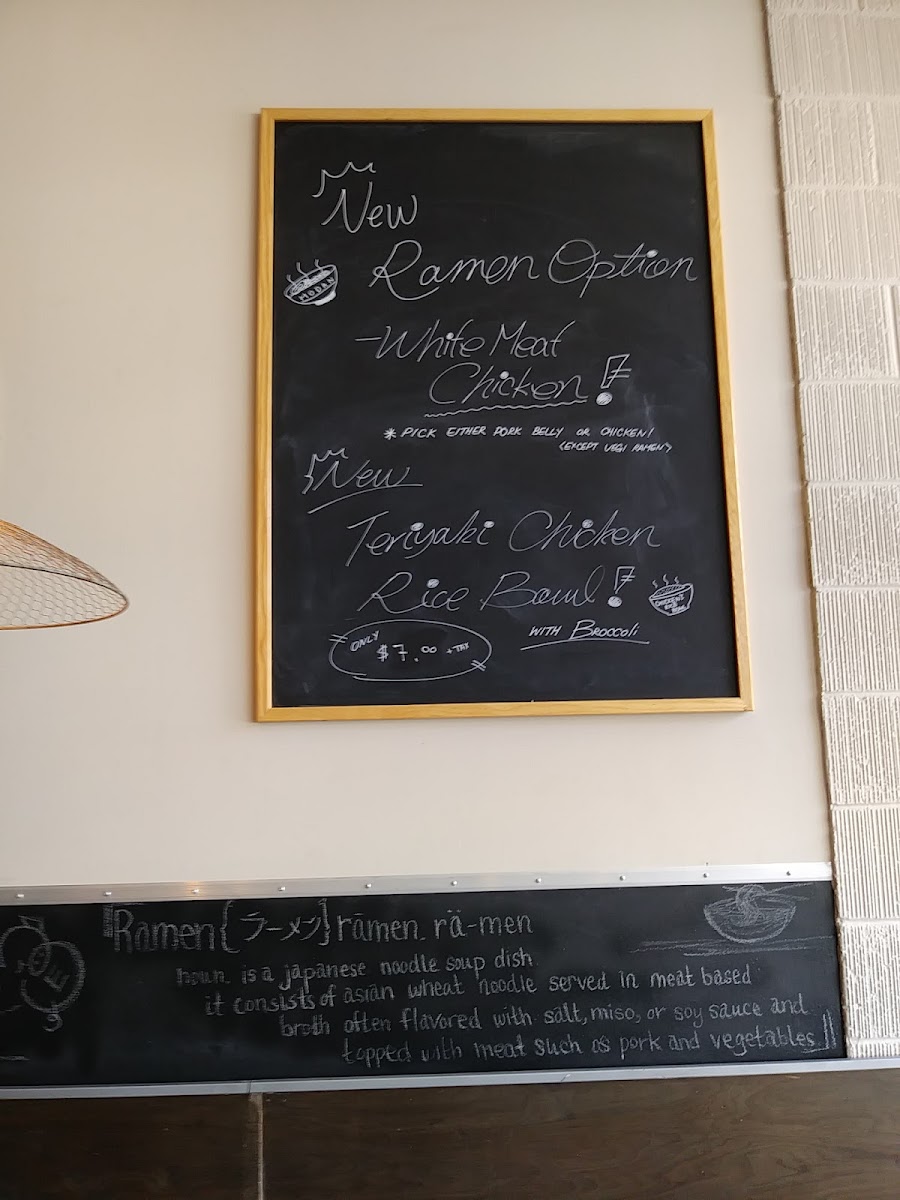 New
Ramen Option
MODAN
-White Meat
Chicken!
* PICK EITHER PORK BELLY OR CHICKEN!
(EXCEPT VEGI RAMEN)
New
Teriyaki Chicken
Rice Bowl!
WITH BROCCOLI
ONLY
$7.00 + TAX
「Ramen{ラーメン}rāmen. rä-men
noun. is a japanese noodle soup dish
it consists of asian wheat noodle served in meat based
broth often flavored with salt, miso, or soy sauce and
topped with meat such as pork and vegetables.」